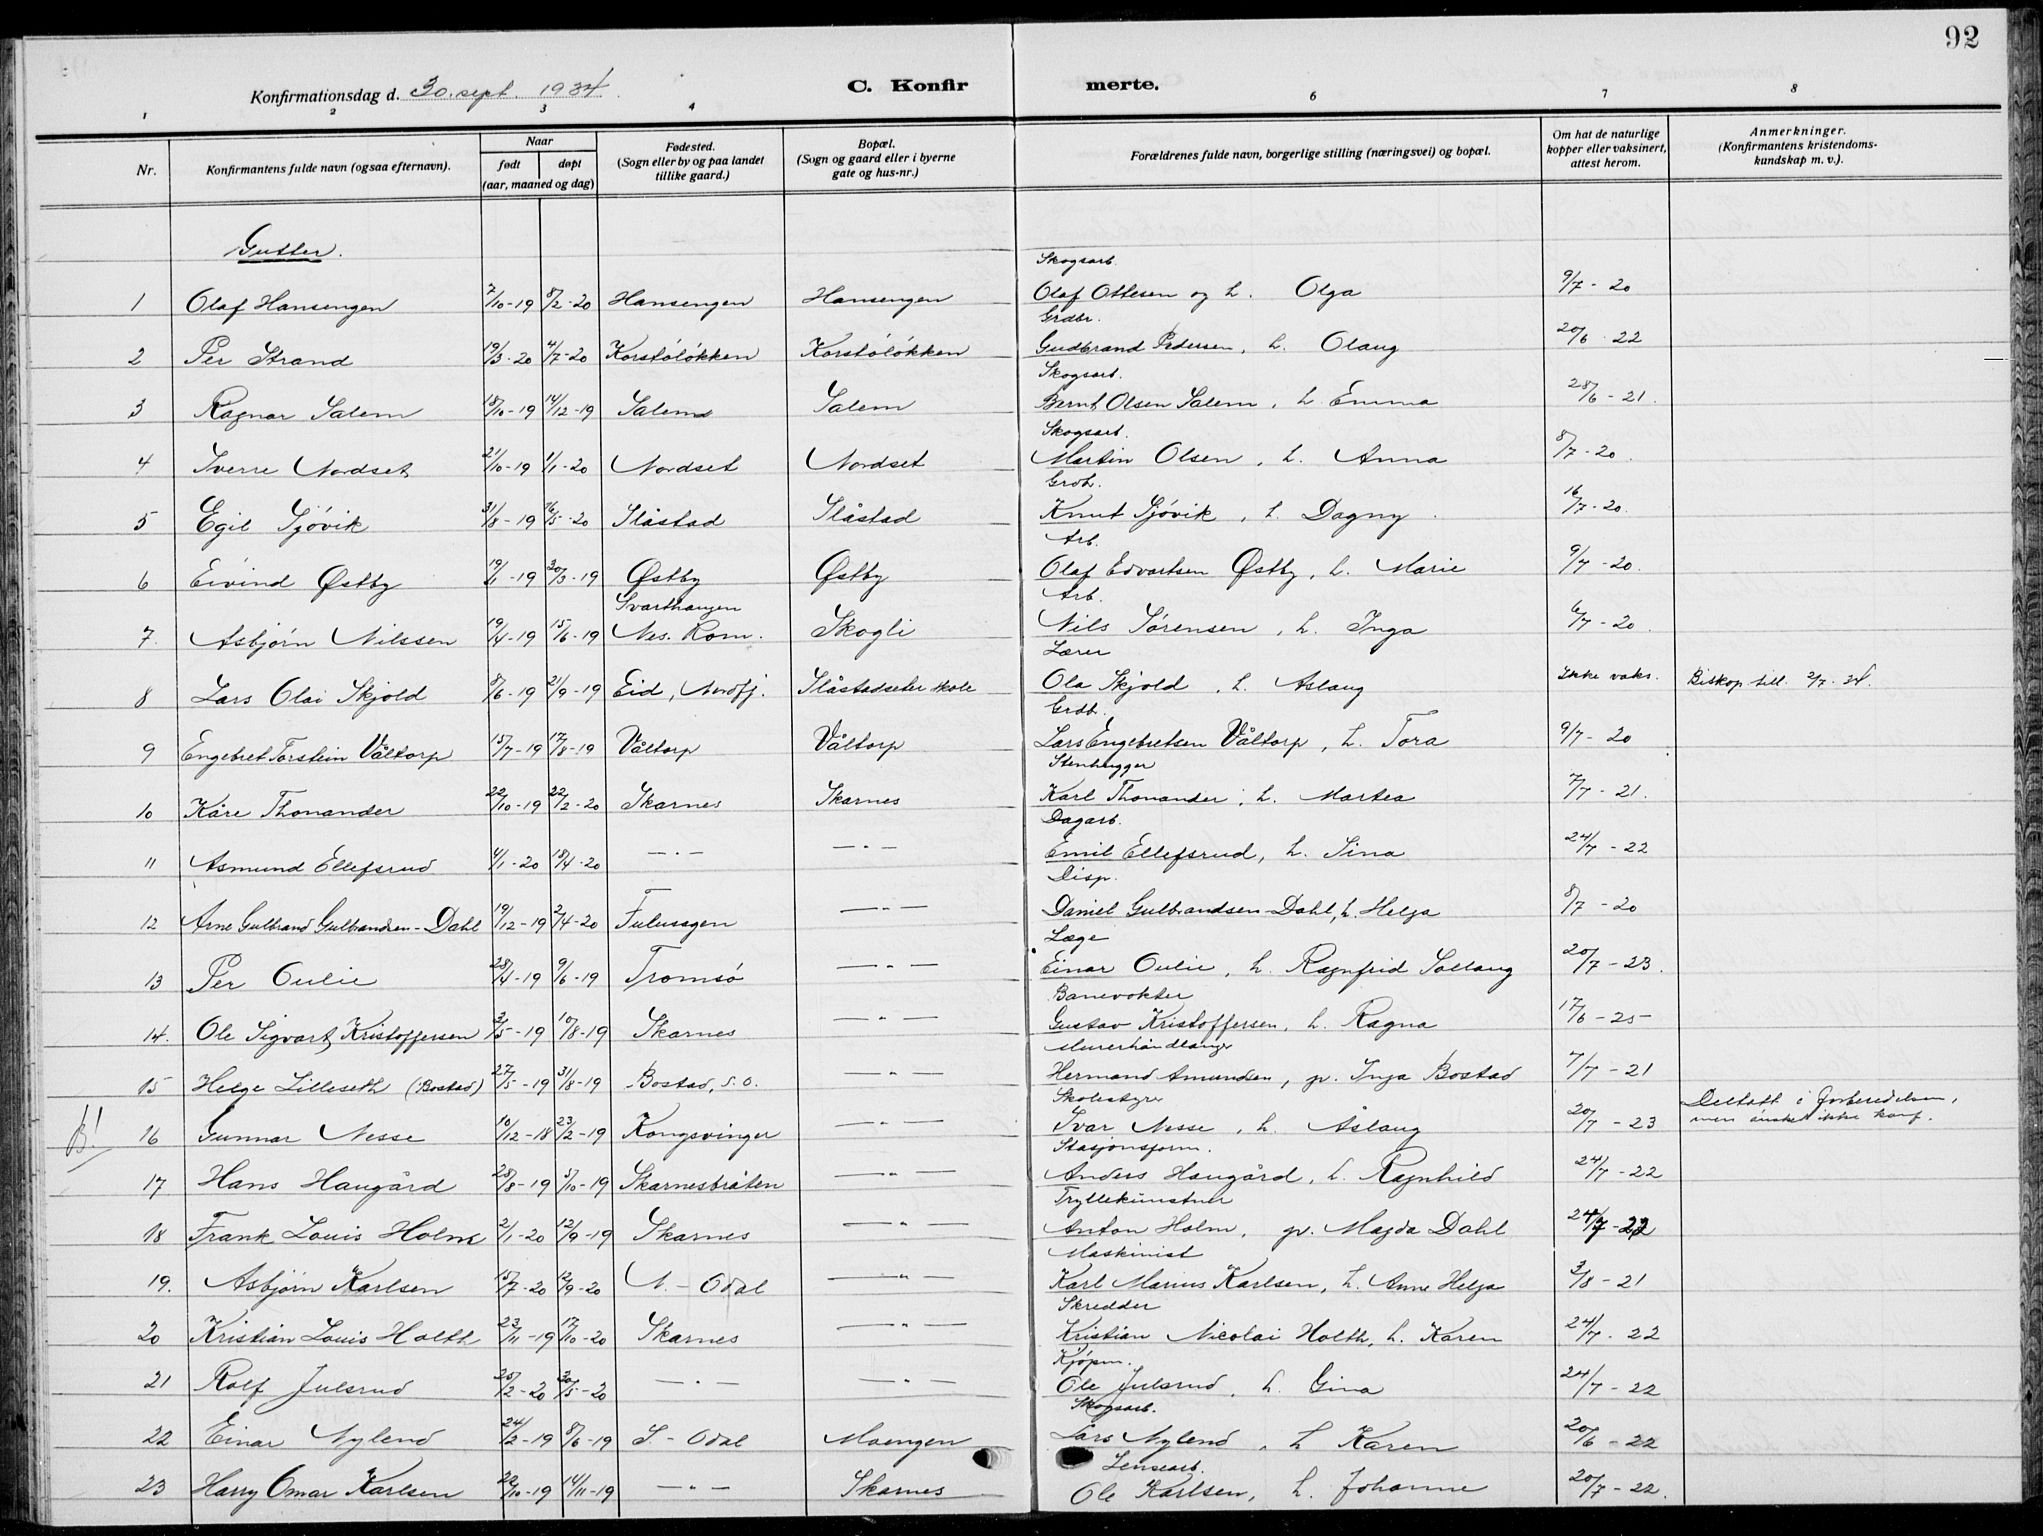 92
Konfirmationsdag d. 30. sept. 1934
C. Konfirmerte.
1 2 3 4 6 7 8
Nr. | Konfirmantens fulde navn (ogsaa efternavn). | Naar født | døpt (aar, maaned og dag) | Fødested. (Sogn eller by og paa landet tillike gaard.) | Bopæl. (Sogn og gaard eller i byerne gate og hus-nr.) | Forældrenes fulde navn, borgerlige stilling (næringsvei) og bopæl. | Om hat de naturlige kopper eller vaksinert, attest herom. | Anmerkninger. (Konfirmantens kristendomskundskap m. v.).
Gutter.
Skogsarb.
1 Olaf Hansengen 7/10-19 8/2-20 Hansengen Hansengen Olaf Ottesen og h. Olga 9/7-20
Grdbr.
2 Per Strand 19/3-20 4/7-20 Korstóløkken Korstóløkken Gudbrand Pedersen, h. Olaug 20/6-22
Skogsarb.
3 Ragnar Salem 18/10-19 14/12-19 Salem Salem Bernt Olsen Salem, h. Emma 28/6-21.
Skogsarb.
4 Sverre Nordset 21/10-19 1/1-20 Nordset Nordset Martin Olsen, h. Anna 8/7-20.
Grdb.
5 Egil Sjøvik 31/8-19 16/5-20 Slåstad Slåstad Knut Sjøvik, h Dagny 16/7-20.
Arb.
6 Eivind Østby 19/1-19 30/3-19 Østby Østby Olaf Edvartsen Østby, h. Marie 9/7-20.
Svarthaugen Arb.
7. Asbjørn Nilssen 19/4-19 15/6-19 Nes. Rom. Skogli Nils Sørensen, h. Inga 6/7-20.
Lærer
8 Lars Olai Skjold 8/6-19 21/9-19 Eid, Nordfj. Slåstadseter skole Ola Skjold, h. Aslaug Ikke vaks. Biskop till. 2/7.34.
Grdb.
9 Engebret Torstein Våltorp 15/7-19 17/8-19 Våltorp Våltorp Lars Engebretsen Våltorp, h. Tora 9/7-20
Stenhugger
10 Kåre Thonander 22/10-19 22/2-20 Skarnes Skarnes Karl Thonander, h. Martea 7/7-21.
Dagarb.
11 Asmund Ellefsrud 4/1-20 18/4-20 —"— —"— Emil Ellefsrud, h. Sina 24/7-22
Disp.
12 Arne Gulbrand Gulbrandsen-Dahl 19/12-19 2/4-20 Fulusagen —"— Daniel Gulbrandsen-Dahl, h. Helga 8/7-20
Læge
13 Per Oulie 28/4-19 9/6-19 Tromsø —"— Einar Oulie, h. Ragnfrid Sollaug 20/7-23.
Banevokter
14. Ole Sigvart Kristoffersen 3/5-19 10/8-19 Skarnes —"— Gustav Kristoffersen, h. Ragna 17/6-25
Murerhåndlanger
15 Helge Lilleseth (Bostad) 27/5-19 31/8-19 Bostad, S.O. —"— Hermand Amundsen, gr. Inga Bostad 7/7-21
Skolestyrer
B! 16 Gunnar Nesse 10/12-18 23/2-19 Kongsvinger —"— Ivar Nesse, h. Åslaug 20/7-23 Deltatt i forberedelsen, men ønsket ikke konf.
Stasjonsform.
17 Hans Haugård 28/8-19 5/10-19 Skarnesbråten —"— Anders Haugård, h. Ragnhild 24/7-22
Tryllekunstner
18 Frank Louis Holm 2/1-20 12/9-19 Skarnes —"— Anton Holm, gr. Magda Dahl 24/7-22
Maskinist
19. Asbjørn Karlsen 15/7-20 12/9-20 N.-Odal —"— Karl Marius Karlsen, h. Anne Helga 3/8-21
Skredder
20 Kristian Louis Holth 23/11-19 17/10-20 Skarnes —"— Kristian Nicolai Holth, h. Karen 24/7-22
Kjøpm.
21 Rolf Julsrud 25/2-20 30/5-20 —"— —"— Ole Julsrud, h. Gina 24/7-22
Skogsarb.
22 Einar Nylend 24/2-19 8/6-19 S.-Odal Moengen Lars Nylend, h Karen 20/6-22
Lensearb.
23 Harry Omar Karlsen 22/10-19 14/11-19 —"— Skarnes Ole Karlsen, h. Johanne 20/7-22.